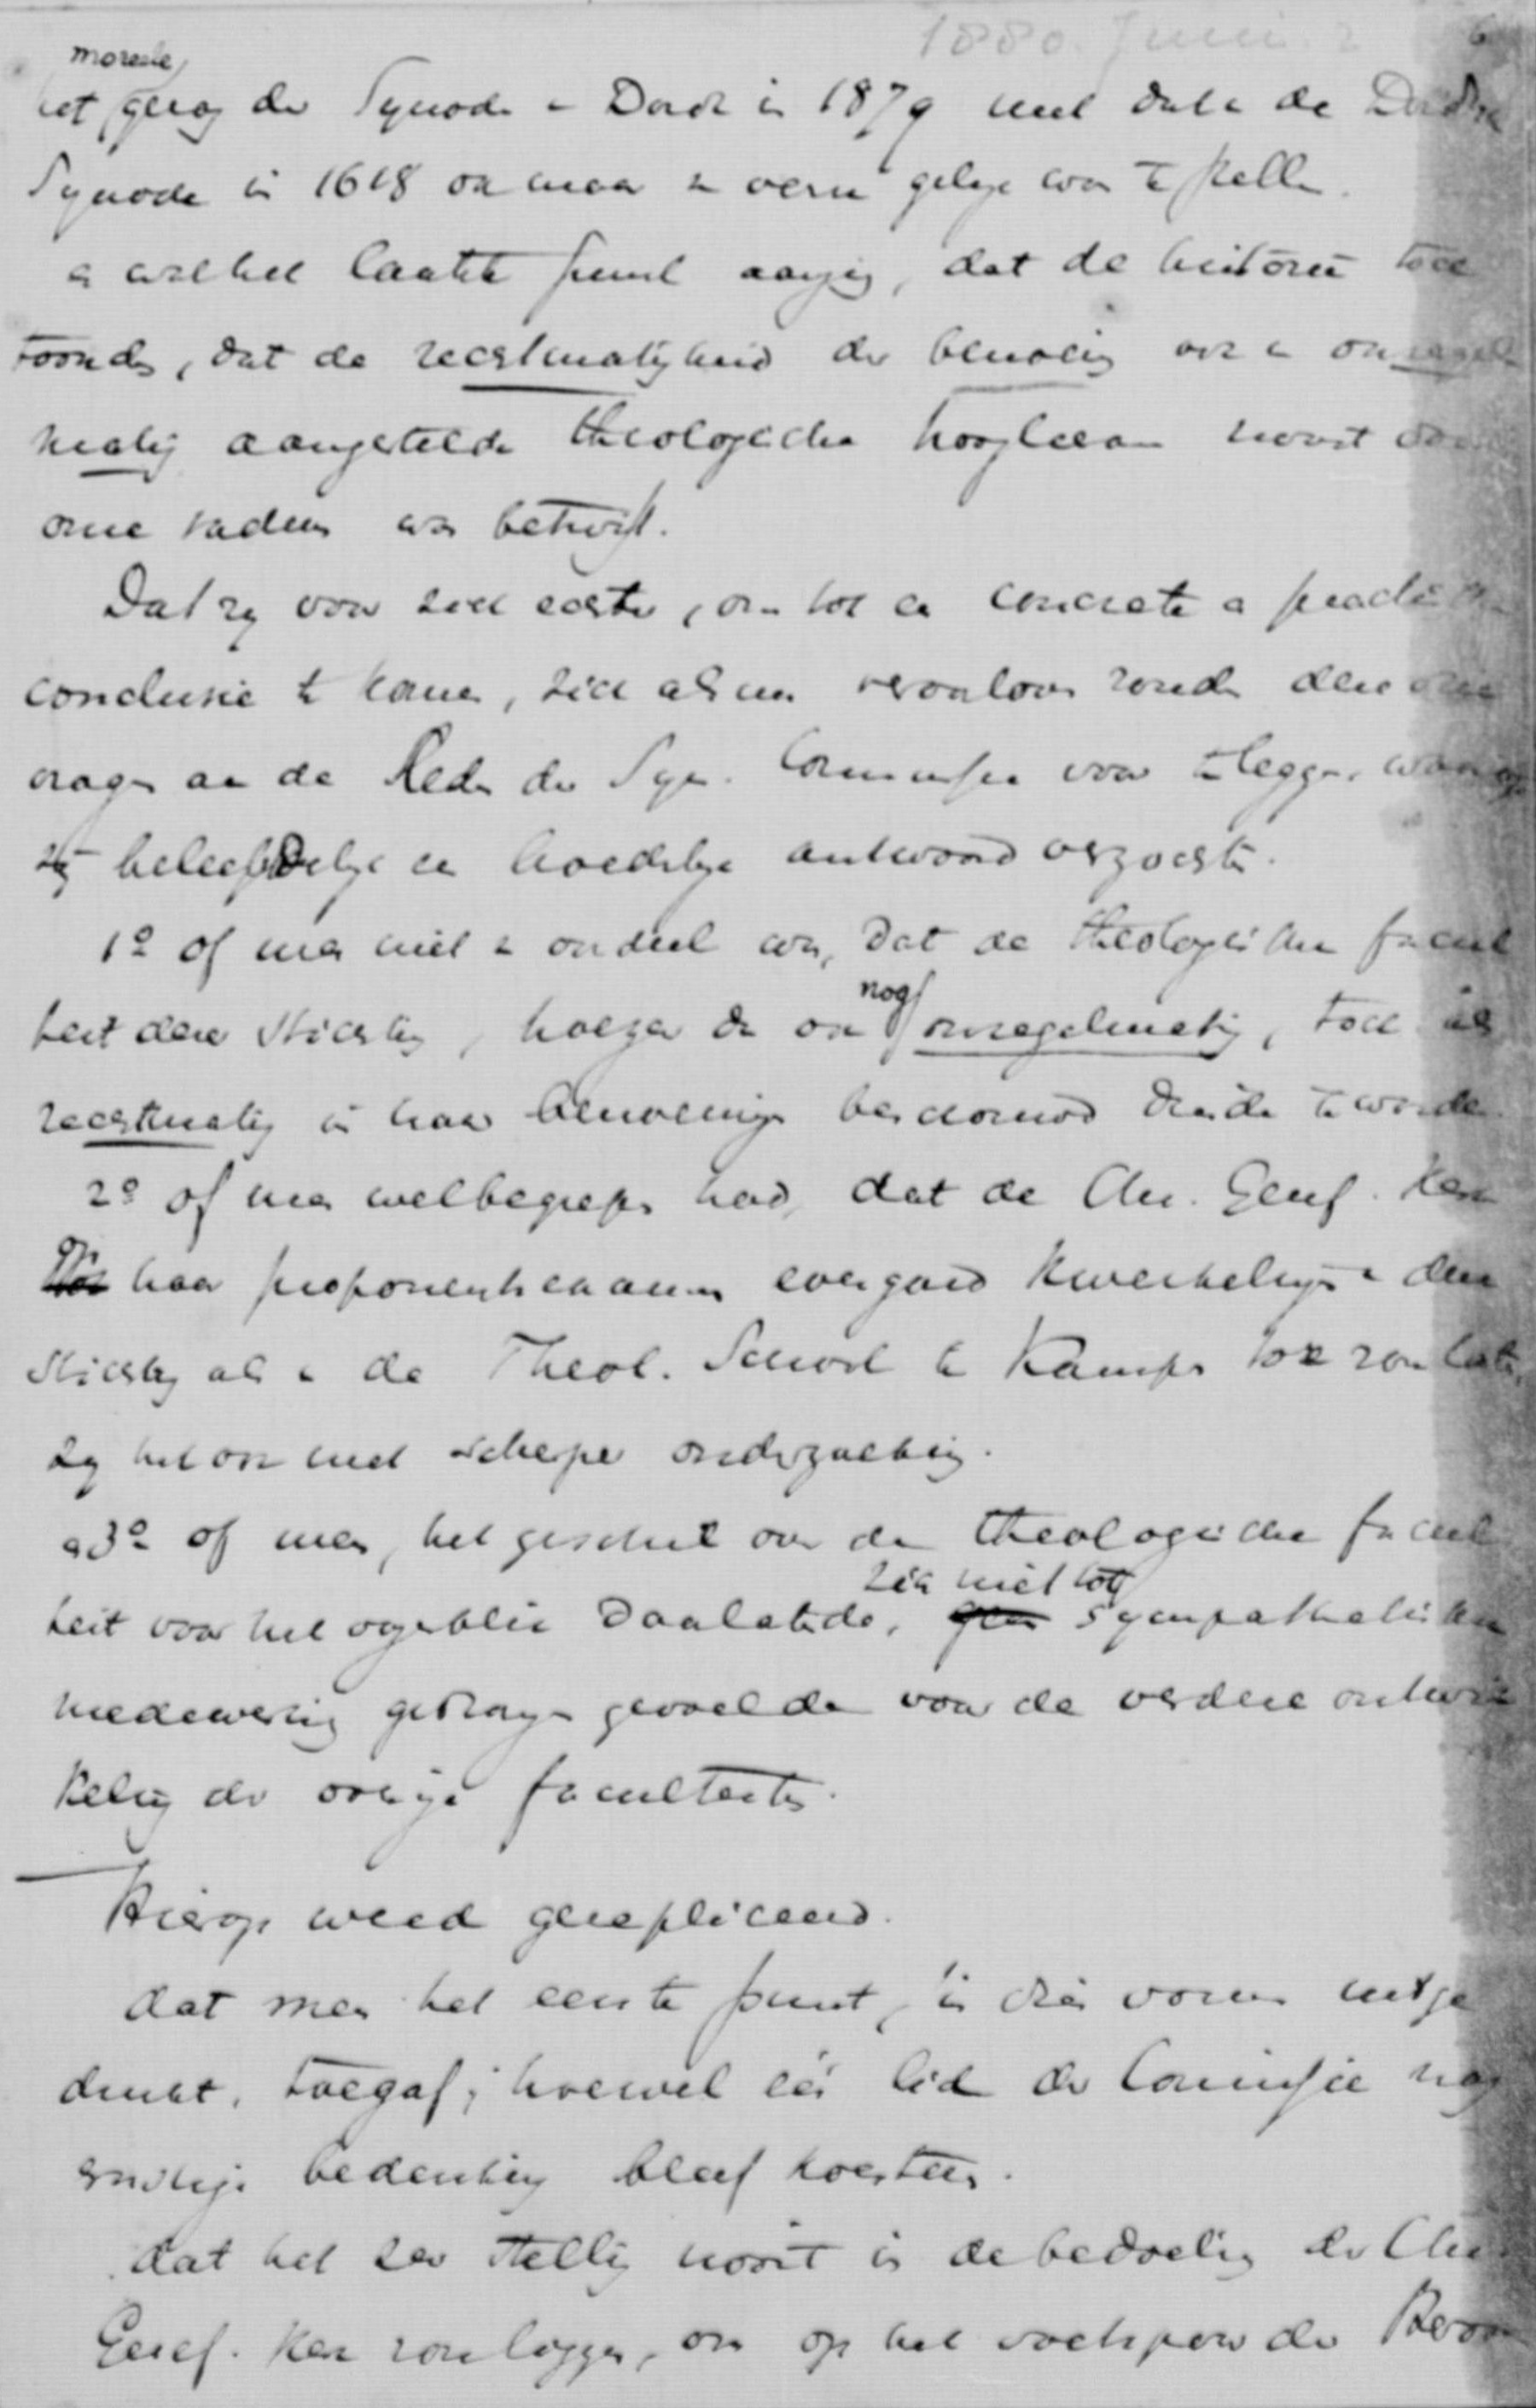 1880. Juni. 2
morele
het gezag der Synode v Dordt in 1879 met dat v de Dordtse
Synode in 1618 ook maar in verre gelijk was te stellen.
en wat het laatste punt aanging, dat de historie toch
toonde, dat de rechtmatigheid der benoeming ook v onregel
matig aangestelde theologische hoogleeraren nooit door
onze vaderen was betwist.
Dat zij voor zich echter, om tot een concrete en practische
conclusie te komen, zich alsnu veroorloven zouden deze drie
vragen aan de Leden der Syn. Commissie voor te leggen, waarop
zij beleefdelijk een broederlijk antwoord verzochten.
1º of men niet v oordeel was, dat de theologische facul
teit dezer Stichting, hoezeer dan ook nog onregelmatig, toch als
rechtmatig in haar benoeming beschouwd diende te worden.
2º of men welbegrepen had, dat de Chr. Geref. Kerk
op haar proponentsexamen evengoed kweekelingen v deze
Stichting als v de Theol. School te Kampen toe zou laten,
zij het ook met scherper onderzoeking.
en 3º of men, het geschil over de theologische facul
teit voor het oogenblik daarlatende, geen zich niet tot sympathetische
medewerking gedrongen gevoelde voor de verdere ontwik
keling der overige faculteiten.
Hierop werd gerepliceerd.
dat men het eerste punt, in dien vorm uitge
drukt, toegaf; hoewel één lid der Commissie nog
ernstige bedenking bleef koesteren.
dat het zeer stellig nooit in de bedoeling der Chr.
Geref. Kerk zou liggen, om op het voetspoor der